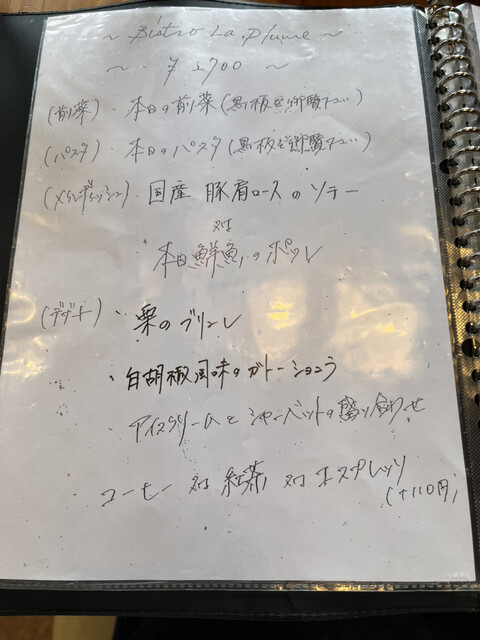 ~ Bistro La Plume ~
~ ¥2700 ~
(前菜)・本日の前菜(黒板を御覧下さい)
(パスタ)・本日のパスタ(黒板を御覧下さい)
(メインディッシュ)・国産 豚肩ロースのソテー
又は
本日鮮魚のポワレ
(デザート)・栗のブリュレ
・白胡椒風味のガトーショコラ
アイスクリームとシャーベットの盛り合わせ
コーヒー 又は 紅茶 又は エスプレッソ
(+110円)